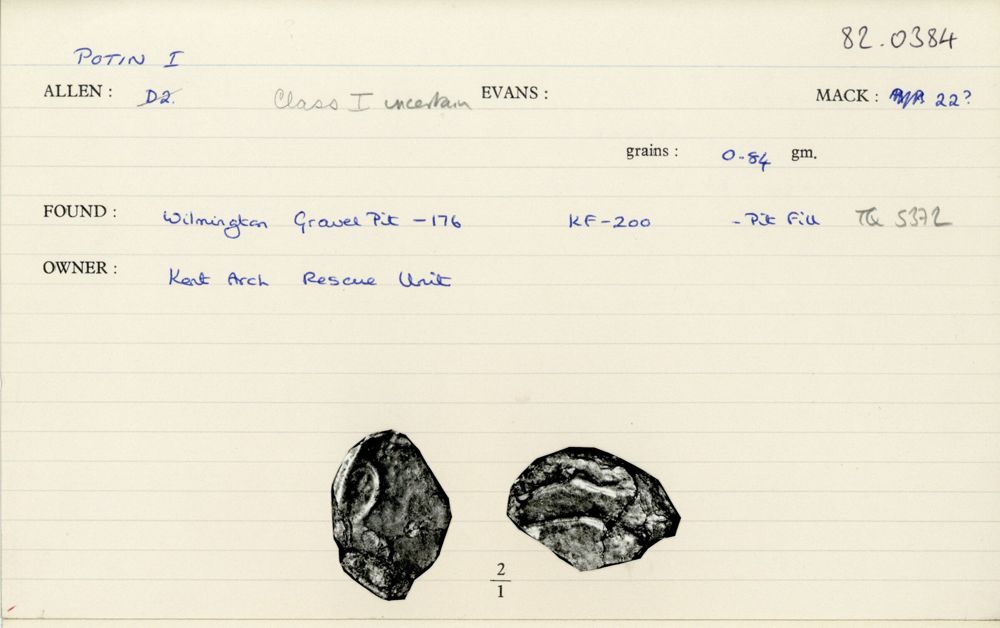 82.0384
POTIN I
ALLEN : D2. Class I uncertain EVANS : MACK : 22?
grains : 0.84 gm.
FOUND : Wilmington Gravel Pit - 176 KF-200 - Pit Fill TQ 5372
OWNER : Kent Arch Rescue Unit
2
1